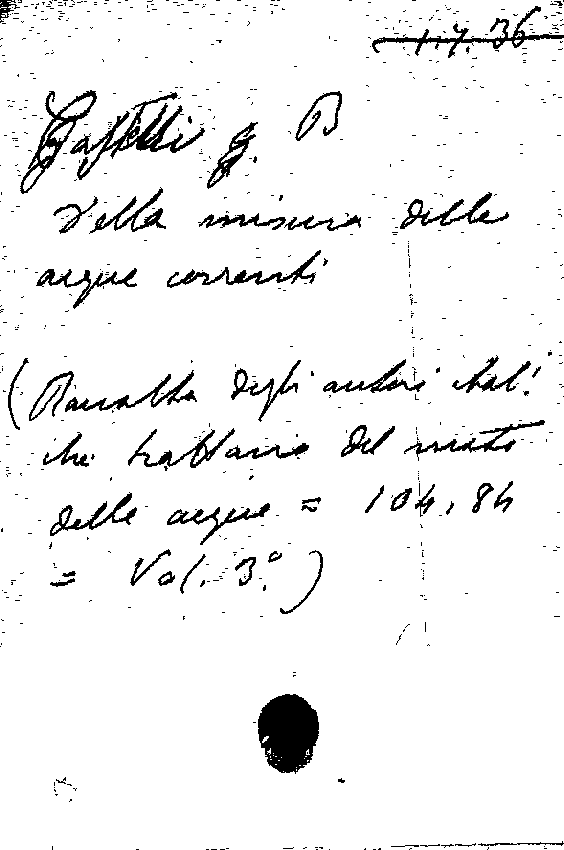 1.7.36
Castelli G. B
Della misura delle
acque correnti
(Raccolta degli autori ital.i
che trattano del moto
delle acque = 104.84
= Vol. 3.°)